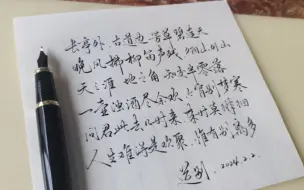 长亭外 古道边 芳草碧连天
晚风拂柳笛声残 夕阳山外山
天之涯 地之角 知交半零落
一壶浊酒尽余欢 今宵别梦寒
问君此去几时来 来时莫徘徊
人生难得是欢聚 惟有别离多
送别. 2024.2.2.